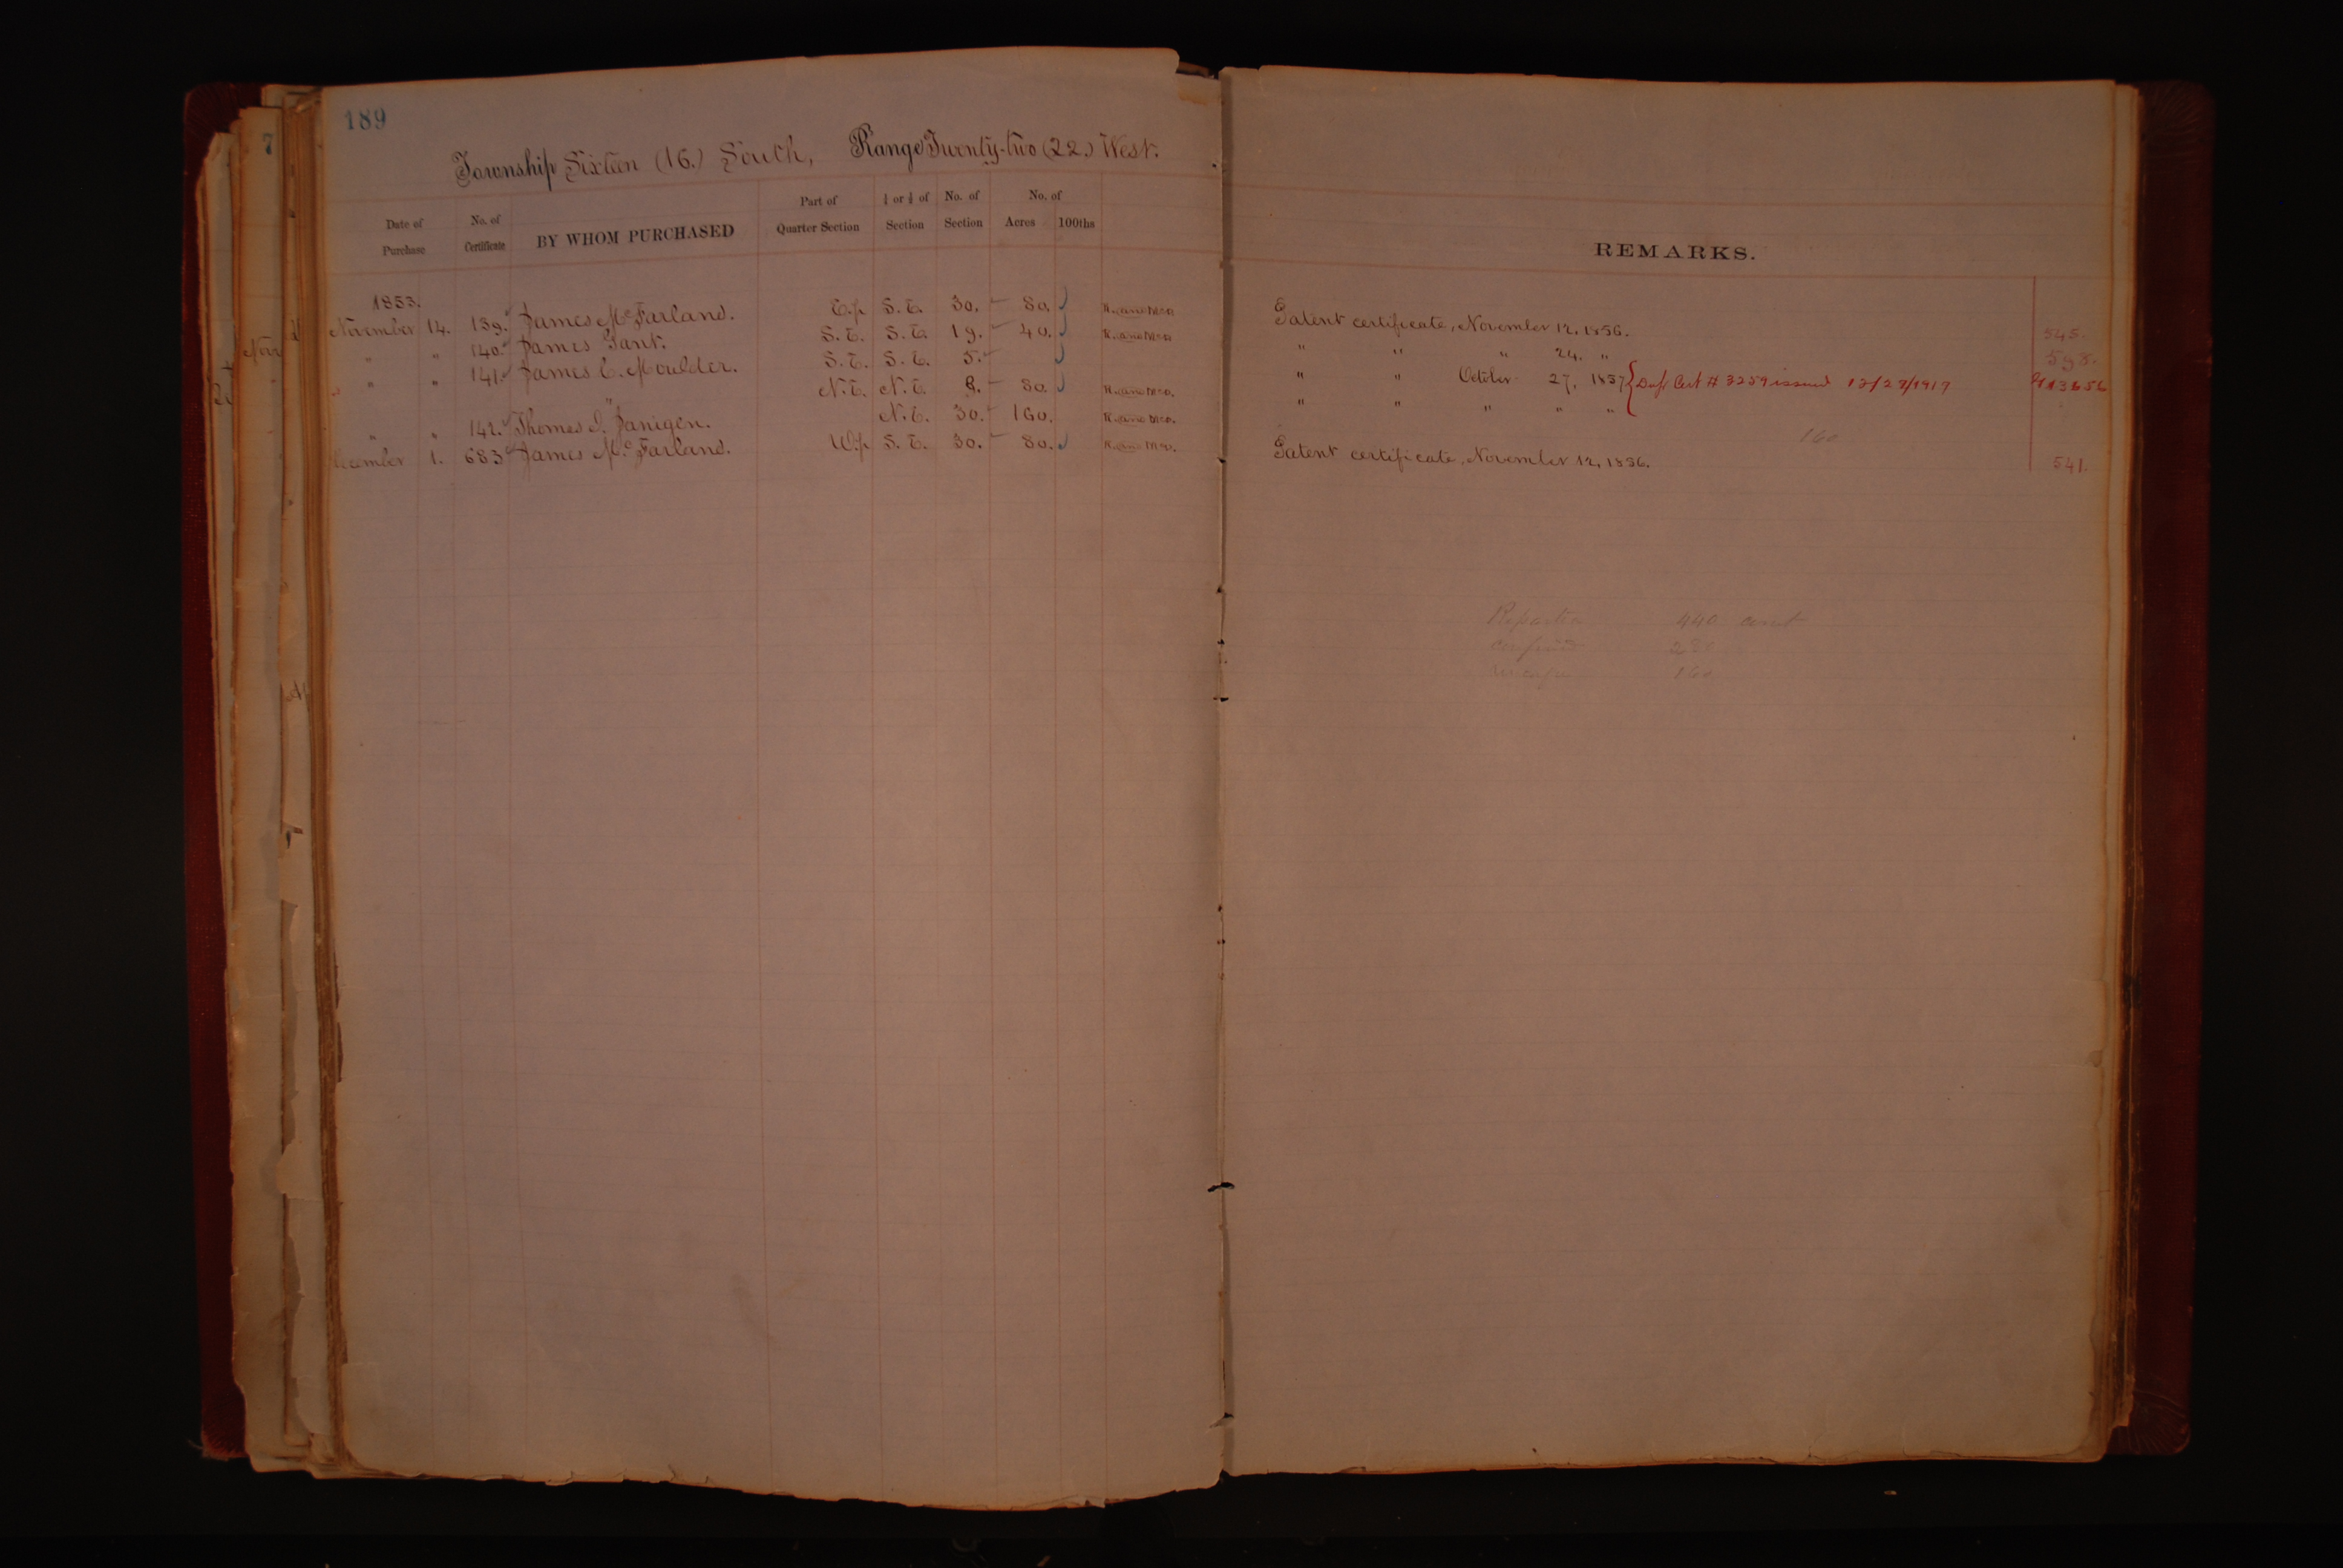 189
Township Sixteen (16.) South, Range Twenty-two (22.) West.
Date of Purchase No. of Certificate BY WHOM PURCHASED Part of Quarter Section ½ or ¼ of Section No. of Section No. of Acres 100ths REMARKS.
1853.
November 14. 139. James McFarland. E.½ S.E. 30. 80. Patent certificate, November 12, 1856. 545.
" " 140. James Gant. S.E. S.E. 19. 40. " " " 24. " 598.
" " 141. James E. Moulder. S.E. S.E. 5. " " October 27, 1857 Dup Cert # 3259 issued 12/27/1917
" N.E. N.E. 8. 80. " " " " "
" " 142. Thomas J. N.E. 30. 160. 160
December 1. 683 James McFarland. W.½ S.E. 30. 80. Patent certificate, November 12, 1856. 541.
440
280
160